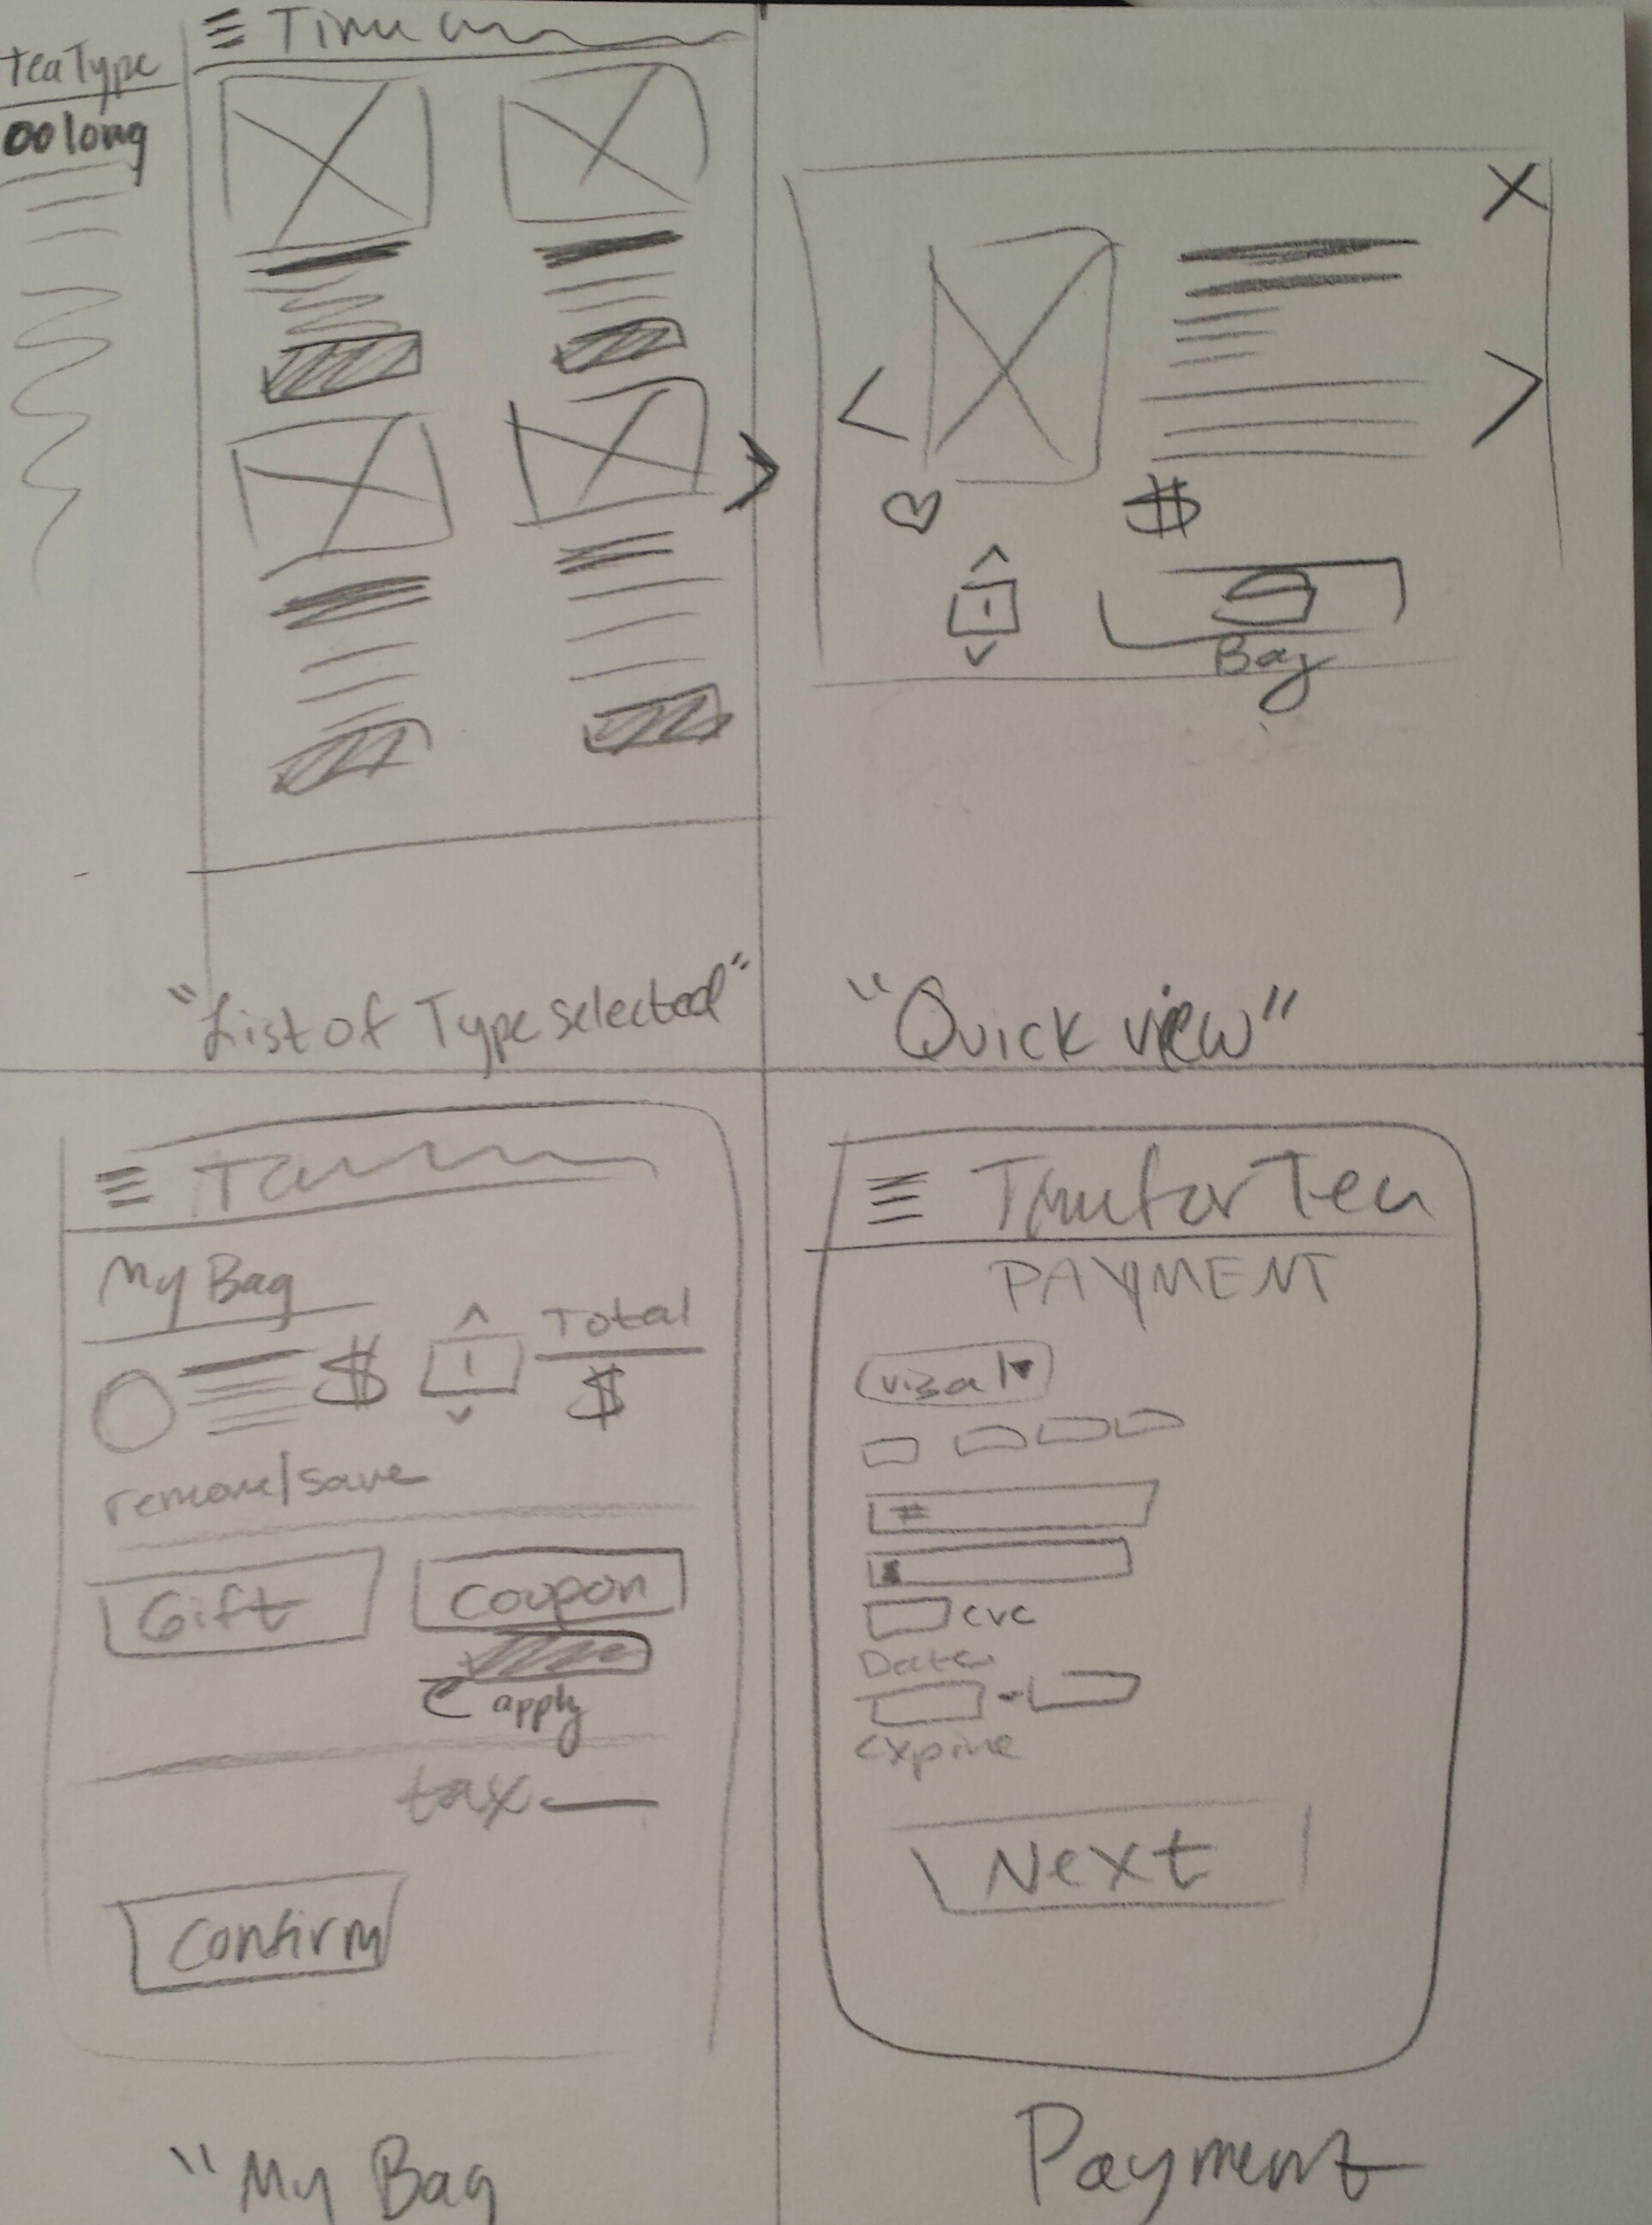 tea Type
oolong
Time
"List of Type selected"
X
<
>
$
1
Bag
"Quick view"
My Bag
$
1
Total
$
remove/save
Gift
coupon
apply
tax
confirm
"My Bag
Time for Tea
PAYMENT
visa
#
cvc
Date
-
expire
Next
Payment